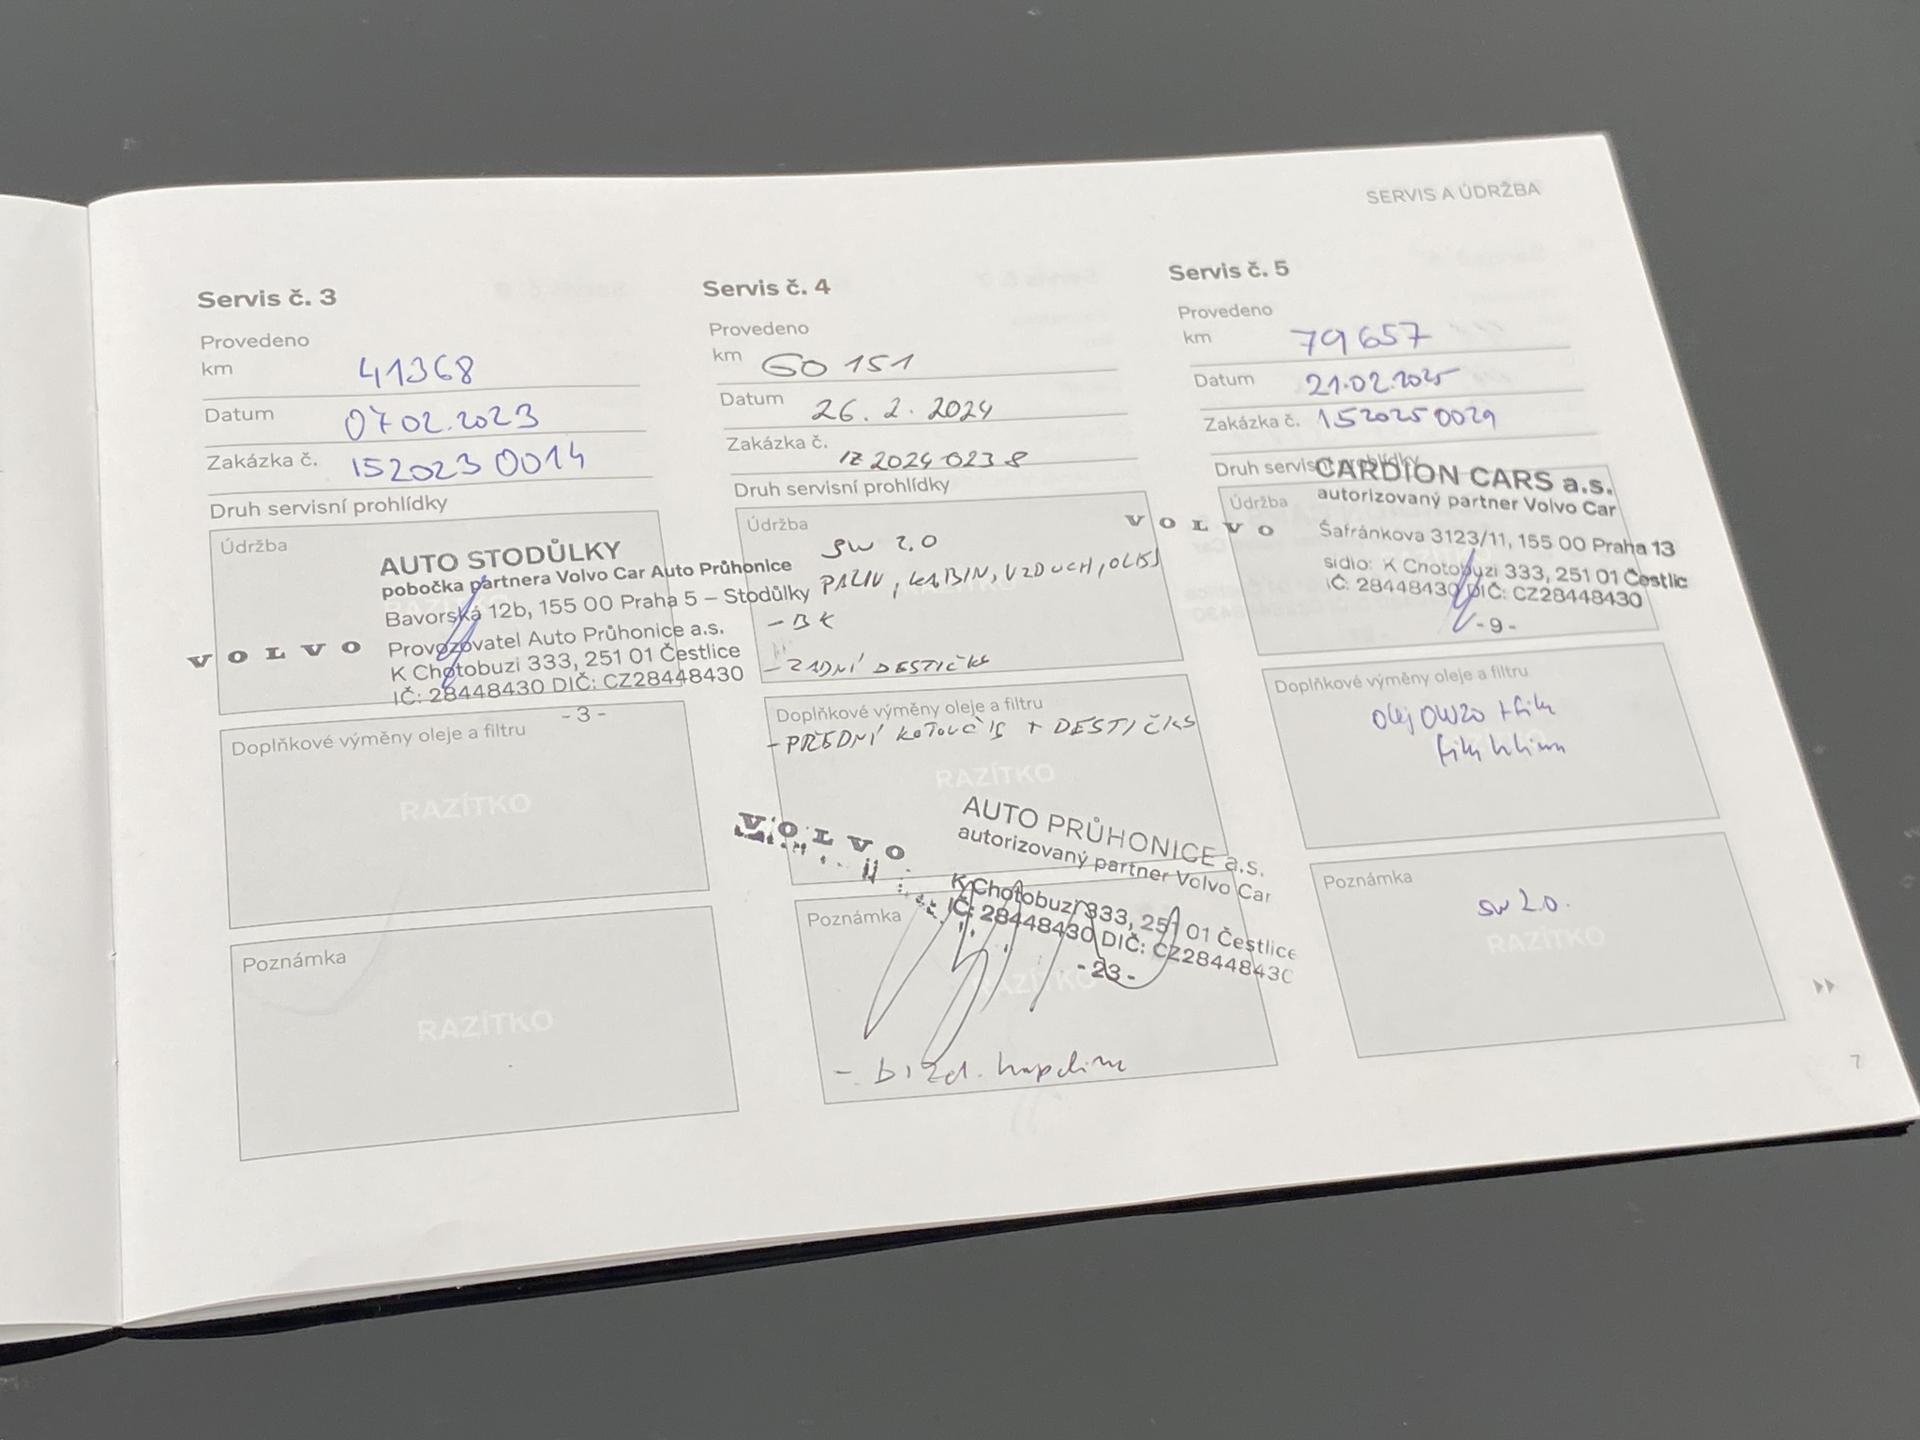 SERVIS A ÚDRŽBA
Servis č. 3
Provedeno
km 41368
Datum 07 02. 2023
Zakázka č. 152023 0014
Druh servisní prohlídky
Údržba
AUTO STODŮLKY
pobočka partnera Volvo Car Auto Průhonice
Bavorská 12b, 155 00 Praha 5 – Stodůlky
VOLVO
Provozovatel Auto Průhonice a.s.
K Chotobuzi 333, 251 01 Čestlice
IČ: 28448430 DIČ: CZ28448430
- 3 -
Doplňkové výměny oleje a filtru
RAZÍTKO
Poznámka
RAZÍTKO
Servis č. 4
Provedeno
km 60 151
Datum 26. 2. 2024
Zakázka č. 1Z 2024 0238
Druh servisní prohlídky
Údržba
SW 2.0
PALIV, KABIN, VZDUCH, OLEJ
- BK
- ZADNÍ DESTIČKY
Doplňkové výměny oleje a filtru
- PŘEDNÍ KOTOUČE + DESTIČKY
RAZÍTKO
VOLVO
AUTO PRŮHONICE a.s.
autorizovaný partner Volvo Car
K Chotobuzi 333, 251 01 Čestlice
IČ: 28448430 DIČ: CZ28448430
- 23 -
Poznámka
RAZÍTKO
Servis č. 5
Provedeno
km 79657
Datum 21.02.2025
Zakázka č. 152025 0029
Druh servisní prohlídky
Údržba
CARDION CARS a.s.
autorizovaný partner Volvo Car
VOLVO
Šafránkova 3123/11, 155 00 Praha 13
sídlo: K Chotobuzi 333, 251 01 Čestlic
IČ: 28448430 DIČ: CZ28448430
- 9 -
Doplňkové výměny oleje a filtru
olej 0W20 + filtr
Poznámka
SW 2.0.
RAZÍTKO
7